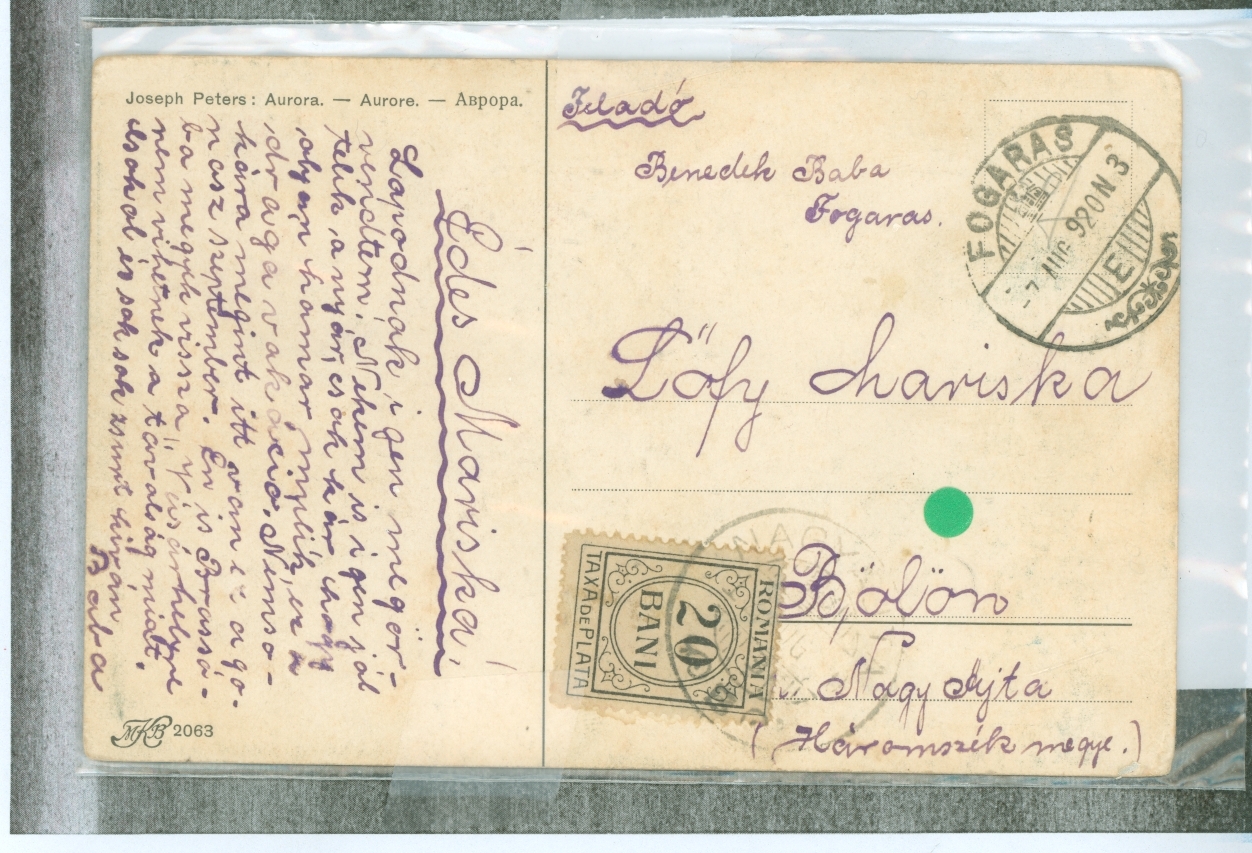 Joseph Peters: Aurora. — Aurore. — Аврора.
Édes Mariska!
Lapodnak igen megör-
vendtem. Nekem is igen jól
telik a nyár, csak kár hogy
olyan hamar múlik, ez a
drága vakáció. Nemso-
kára megint itt van a go-
nosz szeptember. Én is Brassó-
ba megyek vissza Vásárhelyre
nem vihetnek a távolság miatt.
Csókol és sok sok zsurt kíván
Baba
MKB 2063
Feladó
Benedek Baba
Fogaras.
FOGARAS
-7 AUG 920 N 3
E
Lőfy Mariska
Bölön
Nagy Ajta
(Háromszék megye.)
ROMANIA
20
BANI
TAXA DE PLATA